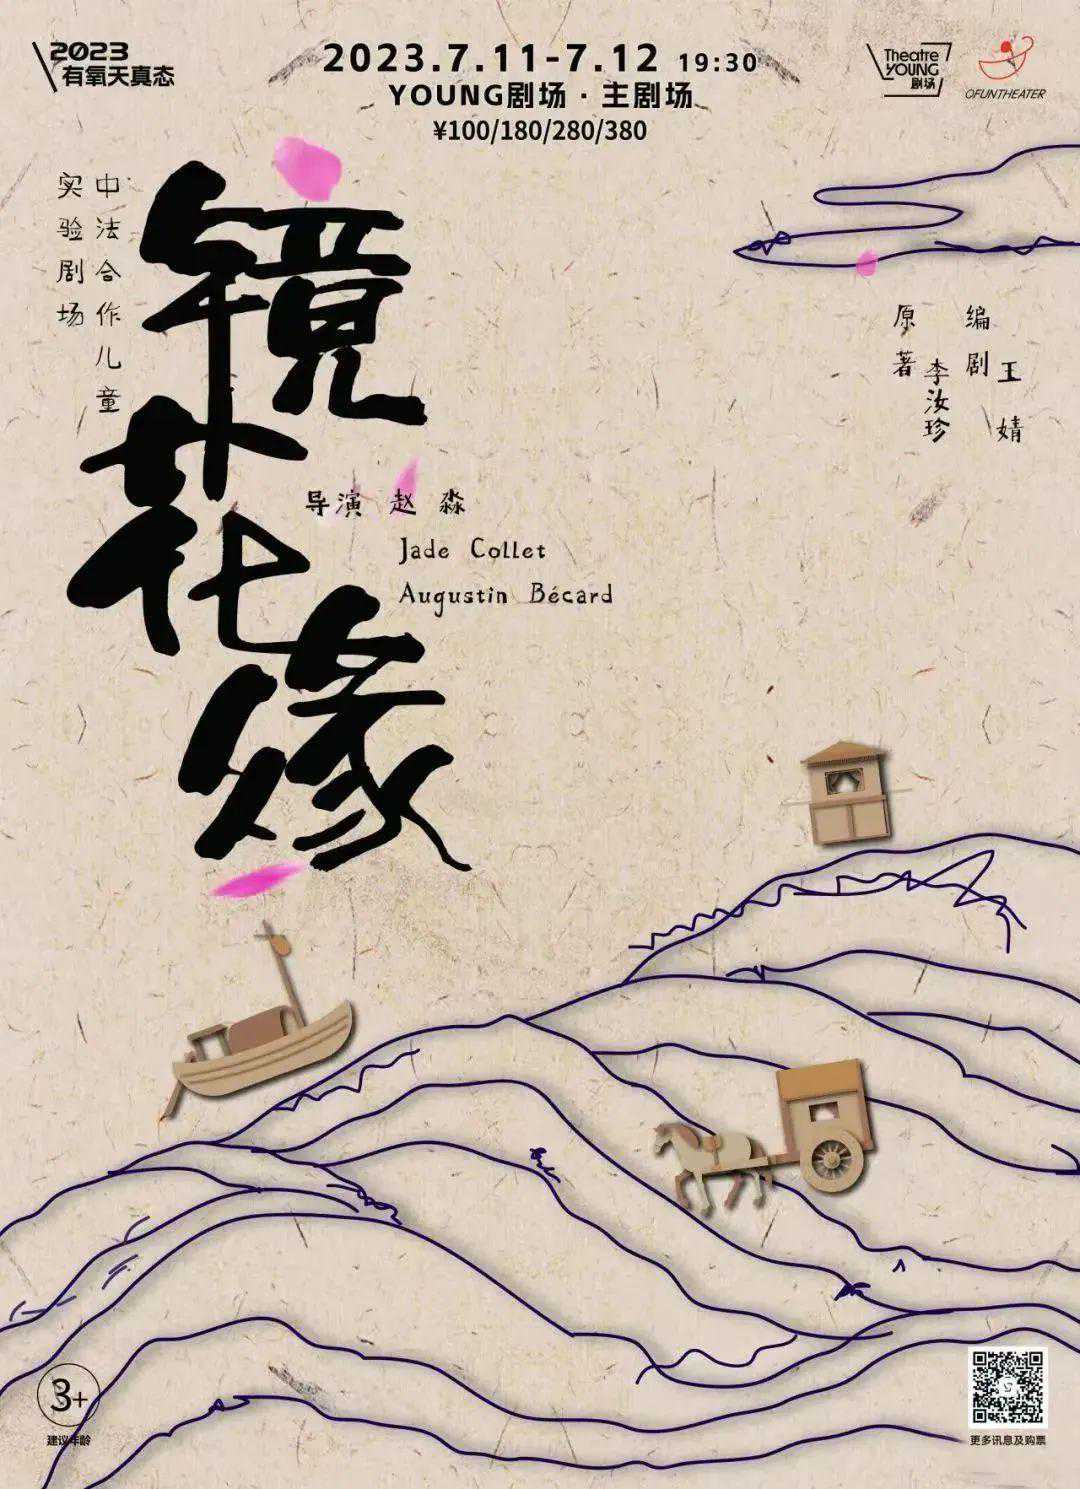 2023
有氧天真态
2023.7.11-7.12 19:30
YOUNG剧场·主剧场
¥100/180/280/380
Theatre
YOUNG
剧场
OFUNTHEATER
中法合作儿童
实验剧场
镜花缘
编剧
王婧
原著
李汝珍
导演 赵淼
Jade Collet
Augustin Bécard
3+
建议年龄
更多讯息及购票